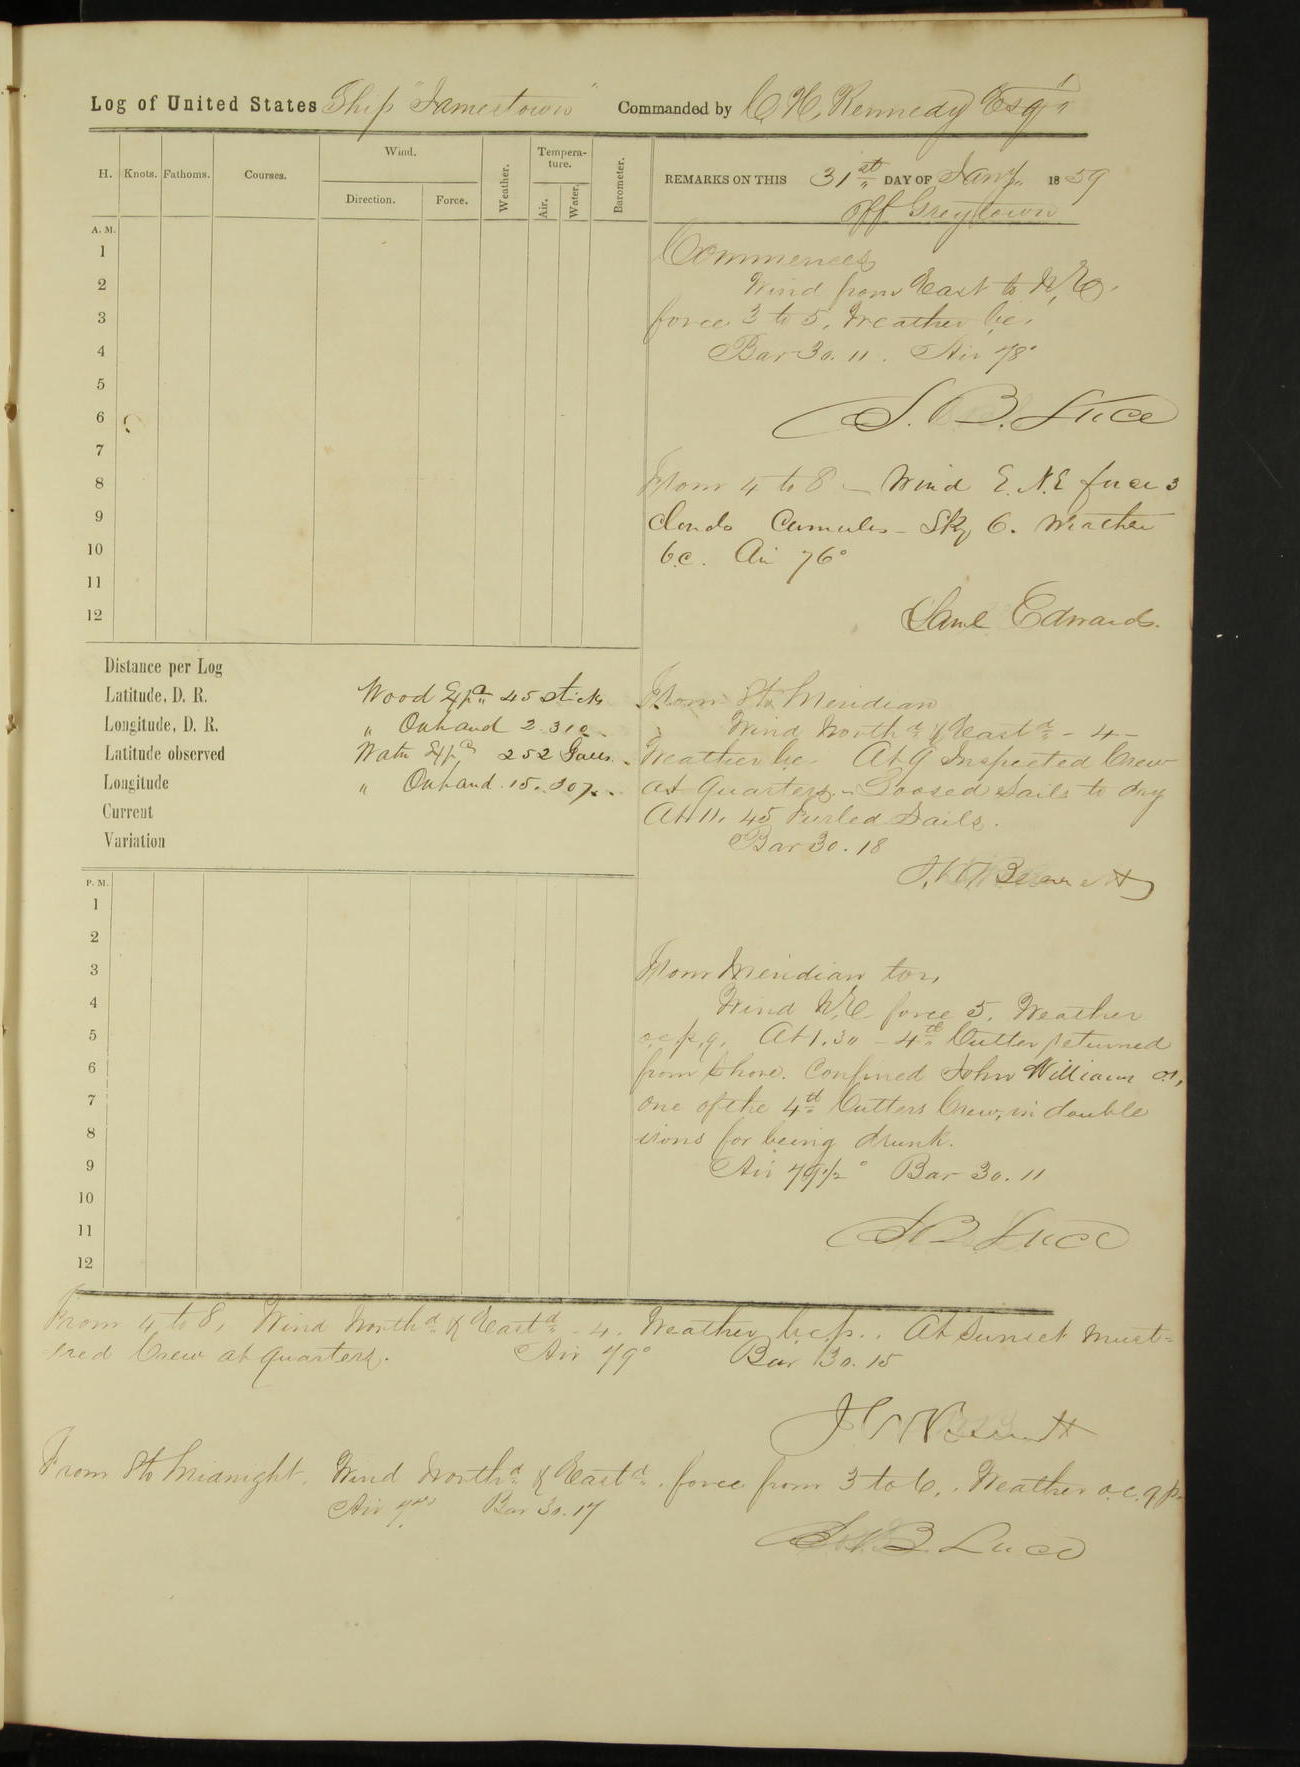 Log of United States Ship "Jamestown" Commanded by C H, Kennedy Esqr
H. Knots. Fathoms. Courses. Wind. Direction. Force. Weather. Tempera-ture. Air. Water. Barometer. REMARKS ON THIS 31st DAY OF Jany. 1859
off Greytown
A. M.
1
2
3
4
5
6
7
8
9
10
11
12
Commences
Wind from East to N, E.
force 3 to 5, Weather bc.
Bar 30.11. Air 78°
S. B. Luce
From 4 to 8 – Wind E. N.E force 3
Clouds Cumulus – Sky 6. Weather
b.c. Air 76°
Saml Edwards.
Distance per Log
Latitude, D. R.
Longitude, D. R.
Latitude observed
Longitude
Current
Variation
Wood Expd 45 sticks
" Onhand 2.310
Water Expd 252 Galls.
" Onhand 15.307
From 8 to Meridian
Wind Northd & Eastd – 4 –
Weather bc. At 9 Inspected Crew
at Quarters – Loosed Sails to dry
At 11.45 Furled Sails.
Bar 30.18
J. W. Bennett
P. M.
1
2
3
4
5
6
7
8
9
10
11
12
From Meridian to 4,
Wind N, E force 5. Weather
o.c.p,q. At 1.30 – 4th Cutter returned
from Shore. Confined John Williams
one of the 4th Cutters Crew, in double
irons for being drunk.
Air 79 1/2° Bar 30.11
S B Luce
From 4 to 8, Wind Northd & Eastd – 4. Weather b.c.p.. At Sunset Must=
=ered Crew at Quarters. Air 79° Bar 30.15
J W Bennett
From 8 to Midnight. Wind Northd & Eastd. force from 3 to 6,. Weather o.c.q p.
Air Bar 30.17
S B Luce